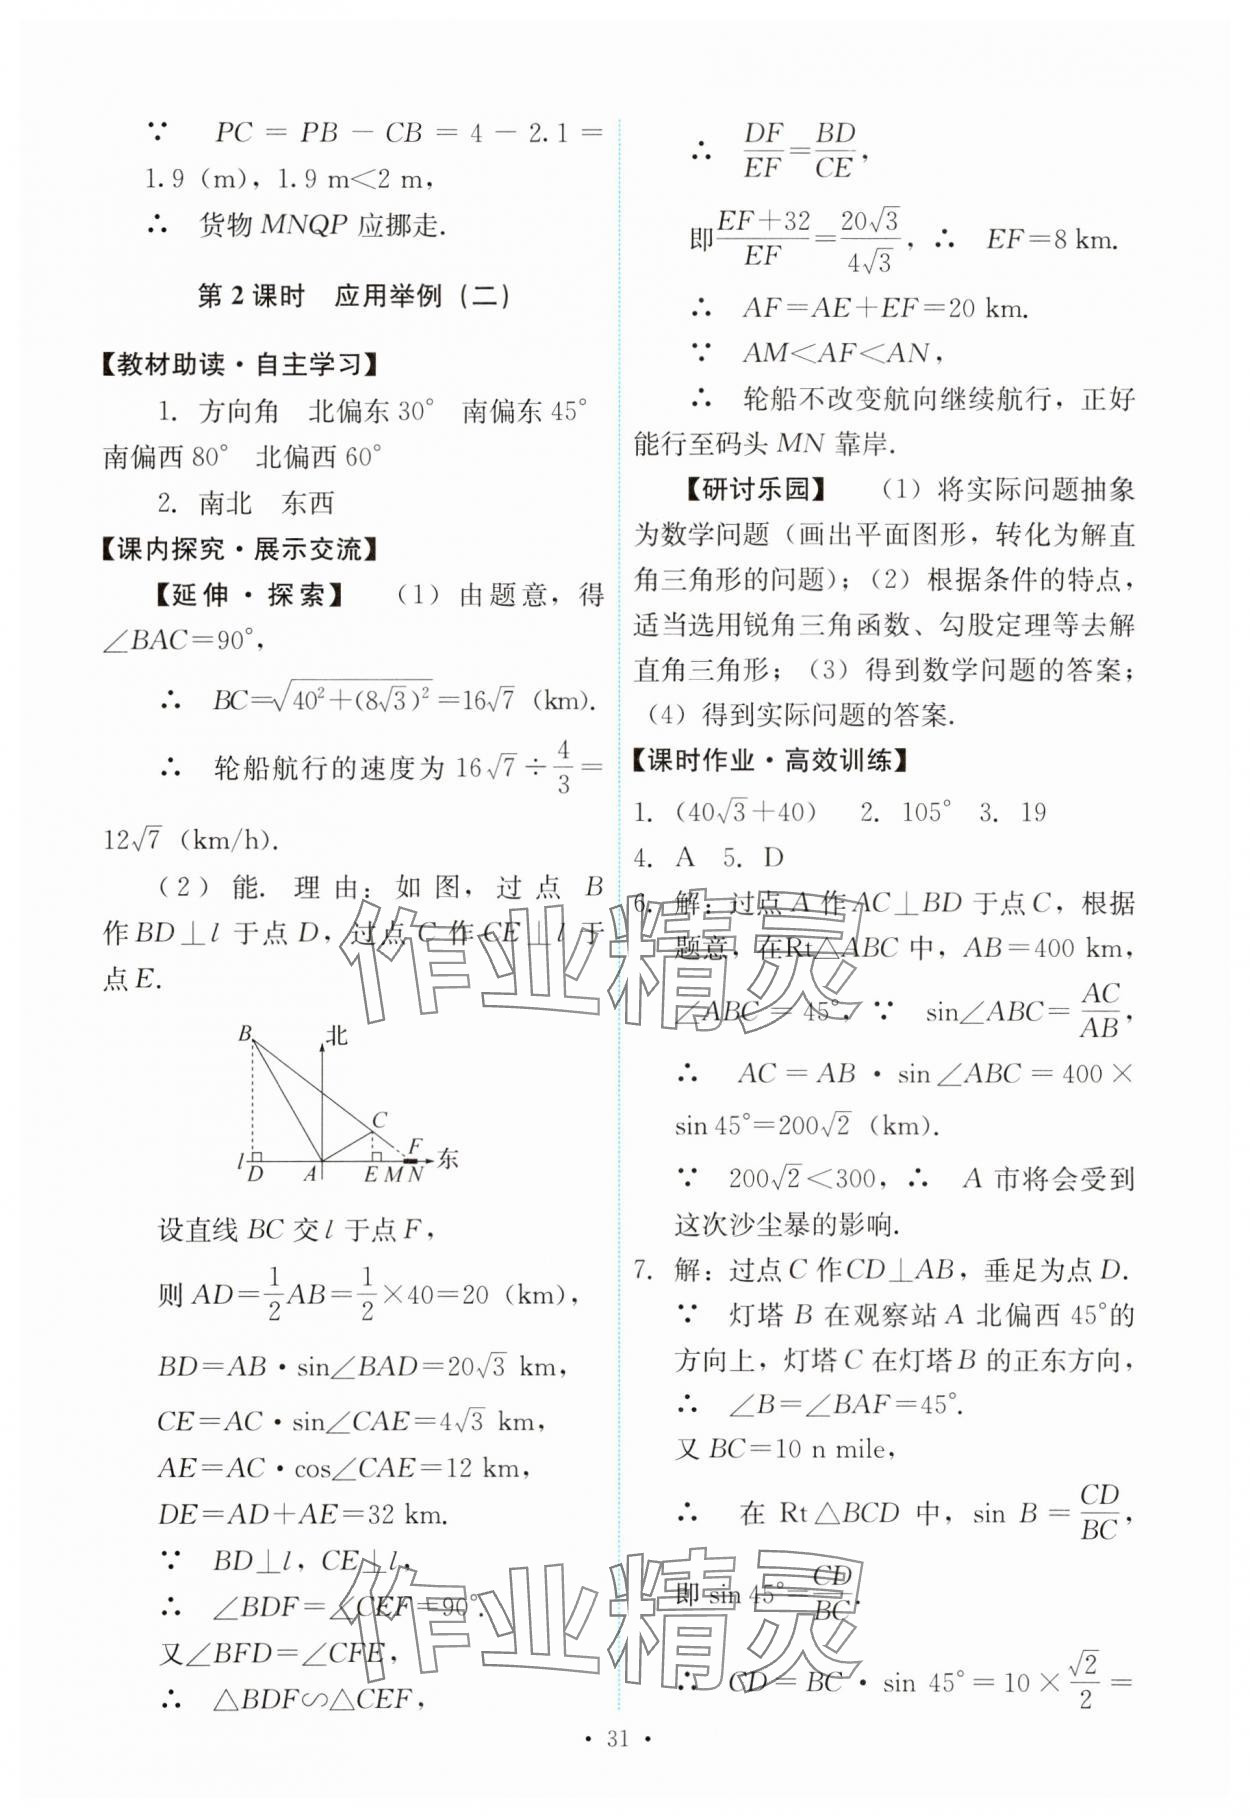 ∵ PC = PB − CB = 4 − 2.1 =
1.9 (m), 1.9 m<2 m,
∴ 货物 MNQP 应挪走.
第 2 课时 应用举例（二）
【教材助读·自主学习】
1. 方向角 北偏东 30° 南偏东 45°
南偏西 80° 北偏西 60°
2. 南北 东西
【课内探究·展示交流】
【延伸·探索】 （1）由题意，得
∠BAC=90°,
∴ BC=√(40²+(8√3)²)=16√7 (km).
∴ 轮船航行的速度为 16√7÷4/3=
12√7 (km/h).
（2）能. 理由：如图，过点 B
作 BD⊥l 于点 D，过点 C 作 CE⊥l 于
点 E.
B 北
C
F
l D A E M N 东
设直线 BC 交 l 于点 F,
则 AD=1/2AB=1/2×40=20 (km),
BD=AB·sin∠BAD=20√3 km,
CE=AC·sin∠CAE=4√3 km,
AE=AC·cos∠CAE=12 km,
DE=AD+AE=32 km.
∵ BD⊥l, CE⊥l,
∴ ∠BDF=∠CEF=90°.
又∠BFD=∠CFE,
∴ △BDF∽△CEF,
∴ DF/EF=BD/CE,
即(EF+32)/EF=20√3/4√3, ∴ EF=8 km.
∴ AF=AE+EF=20 km.
∵ AM<AF<AN,
∴ 轮船不改变航向继续航行，正好
能行至码头 MN 靠岸.
【研讨乐园】 （1）将实际问题抽象
为数学问题（画出平面图形，转化为解直
角三角形的问题）；（2）根据条件的特点，
适当选用锐角三角函数、勾股定理等去解
直角三角形；（3）得到数学问题的答案；
（4）得到实际问题的答案.
【课时作业·高效训练】
1. (40√3+40) 2. 105° 3. 19
4. A 5. D
6. 解：过点 A 作 AC⊥BD 于点 C，根据
题意，在Rt△ABC 中，AB=400 km,
∠ABC = 45°, ∵ sin∠ABC=AC/AB,
∴ AC = AB · sin∠ABC = 400 ×
sin 45°=200√2 (km).
∵ 200√2<300, ∴ A 市将会受到
这次沙尘暴的影响.
7. 解：过点 C 作 CD⊥AB，垂足为点 D.
∵ 灯塔 B 在观察站 A 北偏西 45°的
方向上，灯塔 C 在灯塔 B 的正东方向，
∴ ∠B=∠BAF=45°.
又 BC=10 n mile,
∴ 在 Rt△BCD 中，sin B=CD/BC,
即 sin 45°=CD/BC.
∴ CD = BC · sin 45° = 10 × √2/2 =
· 31 ·
作业精灵
作业精灵